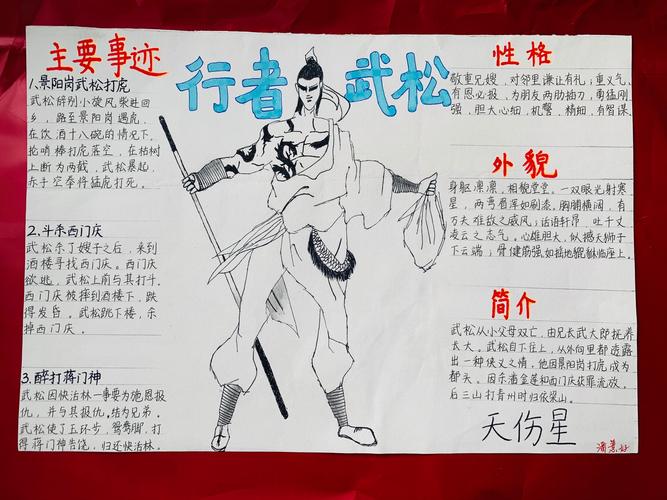 行者武松
主要事迹
1、景阳岗武松打虎
武松辞别小旋风柴进回
乡，路至景阳岗遇虎，
在饮酒十八碗的情况下，
抡哨棒打虎落空，在枯树
上断为两截，武松暴起，
赤手空拳将猛虎打死。
2、斗杀西门庆
武松杀了嫂子之后，来到
酒楼寻找西门庆。西门庆
欲逃，武松上前与其打斗。
西门庆被摔到酒楼下，跌
得发昏，武松跳下楼，杀
掉西门庆。
3、醉打蒋门神
武松因快活林一事要为施恩报
仇，并与其报仇。结为兄弟。
武松使了五环步，鸳鸯脚，打
得蒋门神告饶，归还快活林。
性格
敬重兄嫂，对邻里谦让有礼；重义气、
有恩必报，为朋友两肋插刀，勇猛刚
强，胆大心细，机警，精细，有智谋。
外貌
身躯凛凛，相貌堂堂。一双眼光射寒
星，两弯眉浑如刷漆。胸脯横阔，有
万夫难敌之威风；话语轩昂，吐千丈
凌云之志气。心雄胆大，似撼天狮子
下云端；骨健筋强，如摇地貔貅临座上。
简介
武松从小父母双亡，由兄长武大郎抚养
长大。武松自下往上，从外向里都透露
出一种侠义之情，他因景阳岗打虎成为
都头。因杀潘金莲和西门庆获罪流放。
后三山打青州时归依梁山。
天伤星